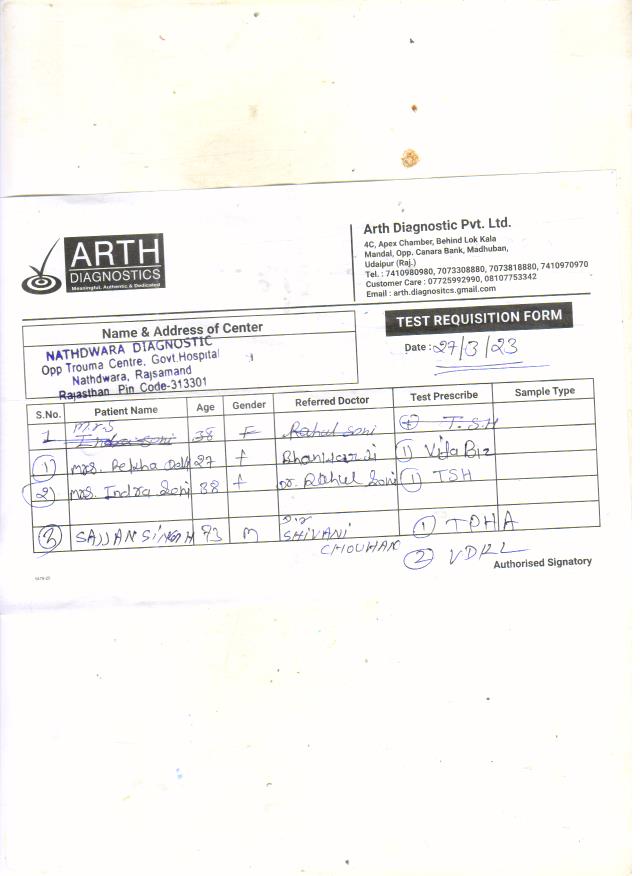 ARTH
DIAGNOSTICS
Meaningful, Authentic & Dedicated
Arth Diagnostic Pvt. Ltd.
4C, Apex Chamber, Behind Lok Kala
Mandal, Opp. Canara Bank, Madhuban,
Udaipur (Raj.)
Tel. : 7410980980, 7073308880, 7073818880, 7410970970
Customer Care : 07725992990, 08107753342
Email : arth.diagnositcs.gmail.com
Name & Address of Center
NATHDWARA DIAGNOSTIC
Opp Trouma Centre, Govt.Hospital
Nathdwara, Rajsamand
Rajasthan Pin Code-313301
TEST REQUISITION FORM
Date : 27/3/23
S.No. Patient Name Age Gender Referred Doctor Test Prescribe Sample Type
1 Mrs Indra Soni 38 F Rahul Soni T.S.H
1 Mrs. Rekha 27 f Bhanwar 1 Vita B12
2 Mrs. Indra Soni 38 f Dr. Rahul Soni 1 TSH
3 SAJJAN SINGH 73 M Dr SHIVANI CHOUHAN 1 TPHA
2 VDRL
Authorised Signatory